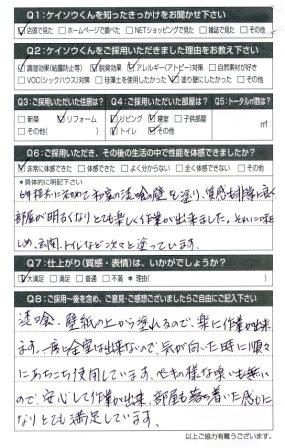 Q1：ケイソウくんを知ったきっかけをお聞かせ下さい
☑店頭で見た □ホームページで調べた □NETショッピングで見た □雑誌で見た □その他
Q2：ケイソウくんをご採用いただきました理由をお教え下さい
☑調湿効果(結露防止等) ☑脱臭効果 ☑アレルギー(アトピー)対策 □自然素材が好き
□VOC(シックハウス)対策 □珪藻土を使用したかった ☑塗り壁にしたかった □その他
Q3：ご採用いただいた住居は? Q4：ご採用いただいた部屋は? Q5：トータルの畳は?
□新築 ☑リフォーム ☑リビング ☑寝室 □子供部屋
□その他( ) ☑トイレ ☑その他 ㎡
Q6：ご採用いただき、その後の生活の中で性能を体感できましたか?
☑非常に体感できた □体感できた □よく分からない □全く体感できない □その他
*具体的に明記下さい
6年程前に初めて和室の漆喰壁を塗り、質感も非常に良く
部屋が明るくなりとても楽しく作業が出来ました。それに味
しめ、玄関、トイレなど次々と塗っています。
Q7：仕上がり(質感・表情)は、いかがでしょうか?
☑大満足 □満足 □普通 □不満 *理由( )
Q8：ご採用〜後を含め、ご意見・ご感想ございましたらご自由にご記入下さい
漆喰、壁紙の上から塗れるので、楽に作業が出来
ます。一度に全室は出来ないので、気が向いた時に順々
にあちこち使用しています。ペンキの様な臭いも無い
ので、安心して作業が出来、部屋も落ち着いた感じに
なりとても満足しています。
以上ご協力有難うございます。